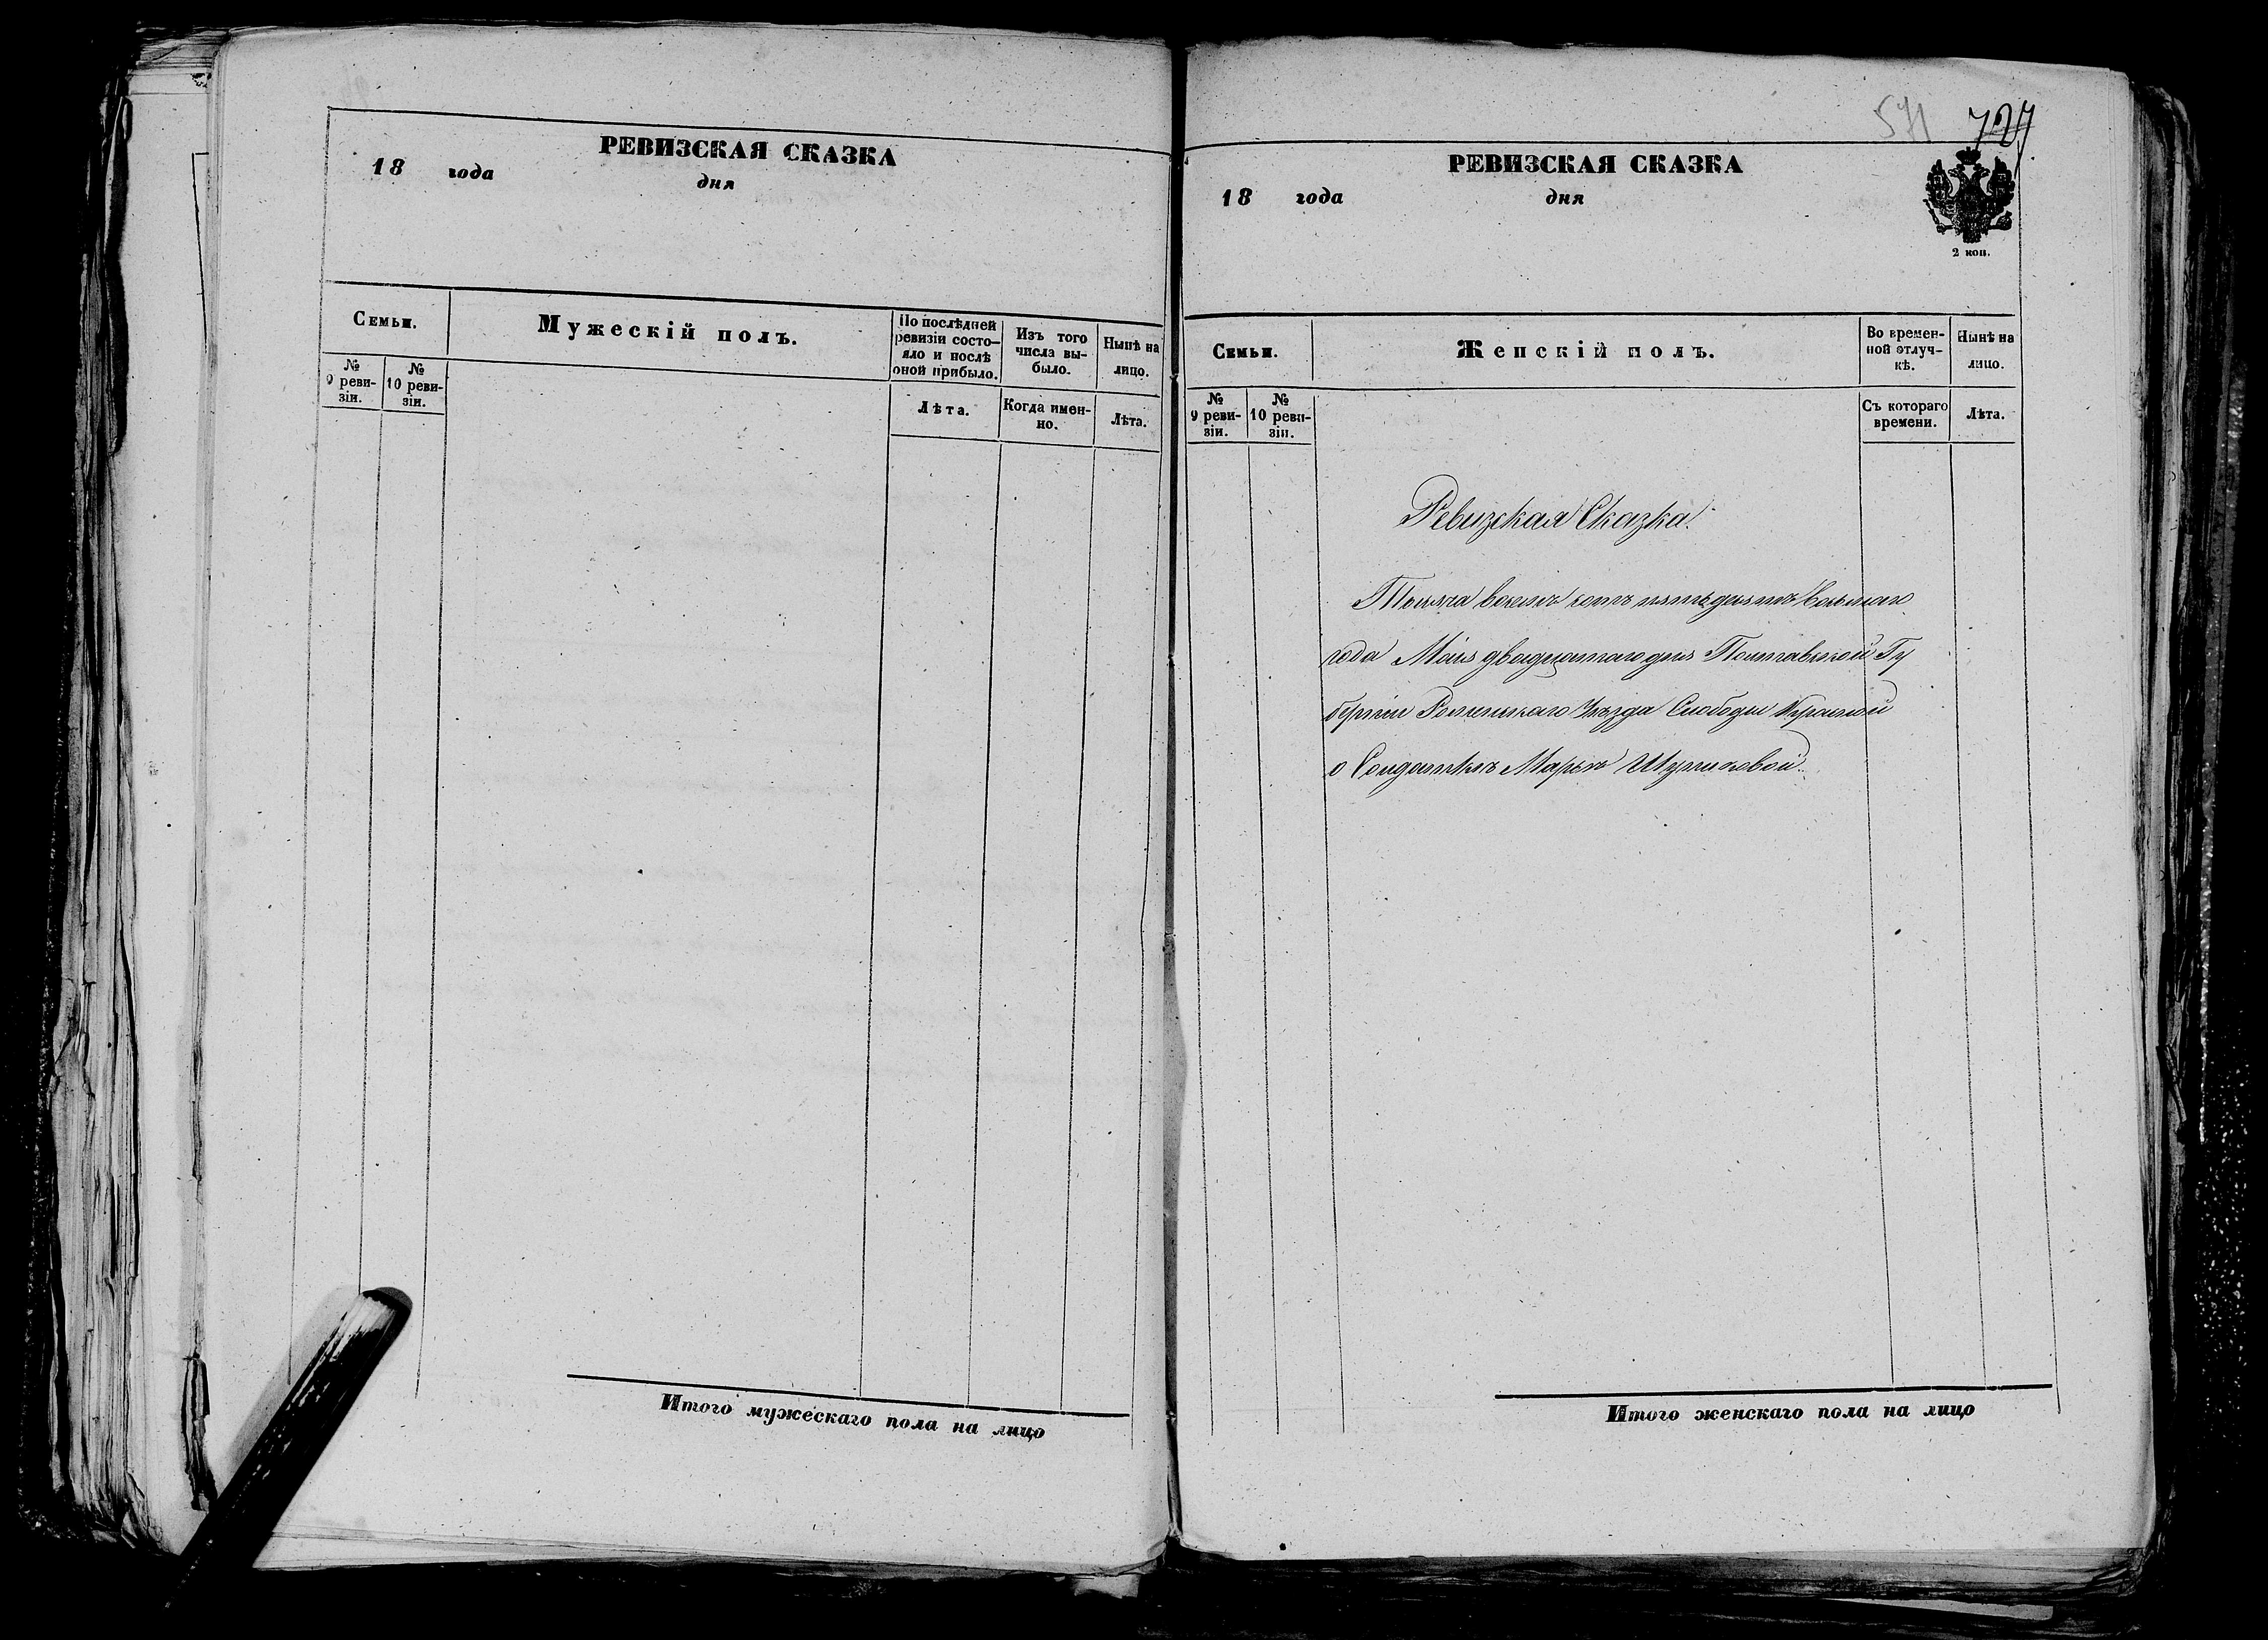 РЕВИЗСКАЯ СКАЗКА
18 года дня
Семьи.
Мужескій полъ.
По послѣдней ревизіи состо-
яло и послѣ оной прибыло.
Изъ того числа вы-
было.
Нынѣ на лицо.
№ 9 реви-
зіи.
№ 10 реви-
зіи.
Лѣта.
Когда имен-
но.
Лѣта.
Итого мужескаго пола на лицо
571 727
РЕВИЗСКАЯ СКАЗКА
18 года дня
2 коп.
Семьи.
Женскій полъ.
Во времен-
ной отлуч-
кѣ.
Нынѣ на лицо.
№ 9 реви-
зіи.
№ 10 реви-
зіи.
Съ котораго времени.
Лѣта.
Ревизская Сказка.
Тысяча восемь сотъ пятьдесятъ восьмаго
года Маія двадцатаго дня Полтавской Гу
берніи Роменскаго Уѣзда Слободы
о Солдаткѣ Марьѣ
Итого женскаго пола на лицо